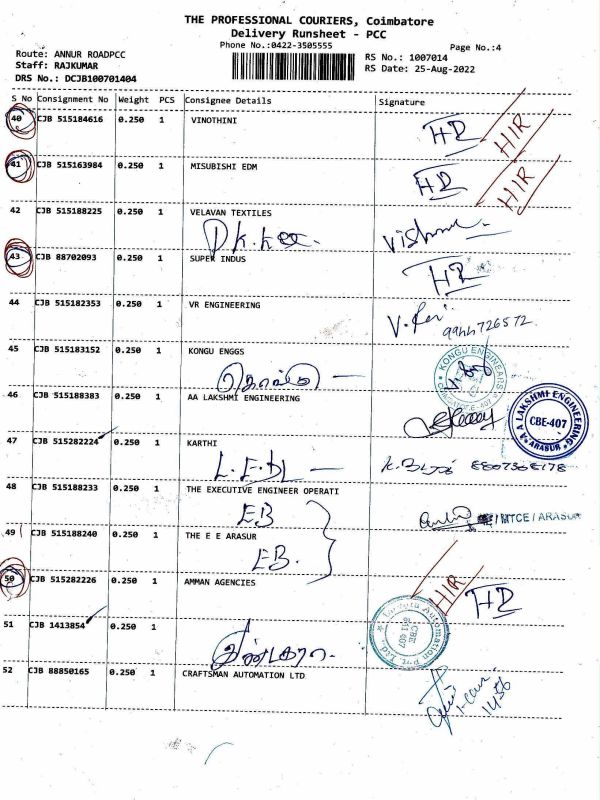 THE PROFESSIONAL COURIERS, Coimbatore
Delivery Runsheet - PCC
Phone No.:0422-3505555
Page No.:4
Route: ANNUR ROADPCC
Staff: RAJKUMAR
DRS No.: DCJB100701404
RS No.: 1007014
RS Date: 25-Aug-2022
S No Consignment No Weight PCS Consignee Details Signature
40 CJB 515184616 0.250 1 VINOTHINI
HIR
41 CJB 515163984 0.250 1 MISUBISHI EDM
HIR
42 CJB 515188225 0.250 1 VELAVAN TEXTILES
43 CJB 88702093 0.250 1 SUPER INDUS
44 CJB 515182353 0.250 1 VR ENGINEERING
45 CJB 515183152 0.250 1 KONGU ENGGS
KONGU ENGINEARS
46 CJB 515188383 0.250 1 AA LAKSHMI ENGINEERING
A A LAKSHMI ENGINEERING
CBE-407
ARASUR
47 CJB 515282224 0.250 1 KARTHI
48 CJB 515188233 0.250 1 THE EXECUTIVE ENGINEER OPERATI
EB
/MTCE/ARASUR
49 CJB 515188240 0.250 1 THE E E ARASUR
EB.
50 CJB 515282226 0.250 1 AMMAN AGENCIES
HIR
51 CJB 1413854 0.250 1
Automation Pvt. Ltd.
CBE
641 407
52 CJB 88850165 0.250 1 CRAFTSMAN AUTOMATION LTD
1456